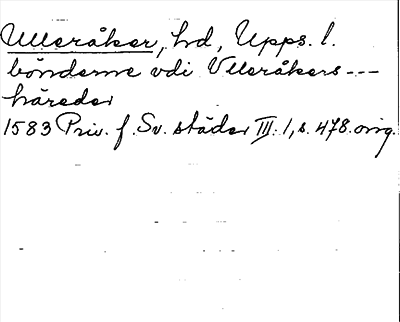 Ulleråker, hd, Upps. l.
bönderne vdi Vlleråkers ---
häreder
1583 Priv. f. Sv. städer III: 1, s. 478. orig.